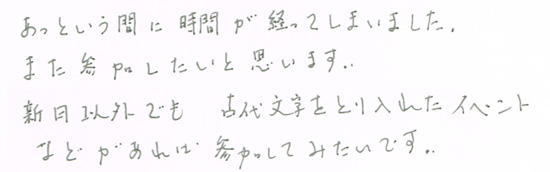 あっという間に時間が経ってしまいました。
また参加したいと思います。
新月以外でも 古代文字をとり入れたイベント
などがあれば参加してみたいです。